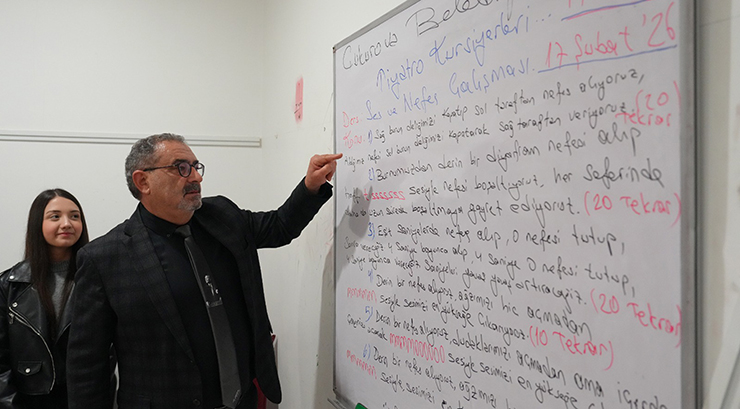 Çukurova Beledi
Tiyatro Kursiyerleri...
17 Şubat '26
Ses ve Nefes Çalışması.
Ders
Konu:
1) Sağ burun deliğimizi kapatıp sol taraftan nefes alıyoruz,
nefesi sol burun deliğimizi kapatarak sağ taraftan veriyoruz. (20 Tekrar)
2) Burnumuzdan derin bir diyafram nefesi alıp
sssssss sesiyle nefesi boşaltıyoruz, her seferinde
daha uzun sürede boşaltmaya gayret ediyoruz. (20 Tekrar)
3) Eşit saniyelerde nefes alıp, o nefesi tutup,
4 saniye boyunca alıp 4 saniye o nefesi tutup,
4 saniye yavaş yavaş artıracağız. (20 Tekrar)
4) Derin bir nefes alıyoruz, ağzımızı hiç açmadan
mmmmm sesiyle sesimizi en yükseğe çıkarıyoruz. (10 Tekrar)
5) Derin bir nefes alıyoruz, dudaklarımızı açmadan ama
mmmmooooo sesiyle sesimizi en yükseğe
6) Derin bir nefes alıyoruz, ağzımızı
mmmmmm sesiyle sesimizi